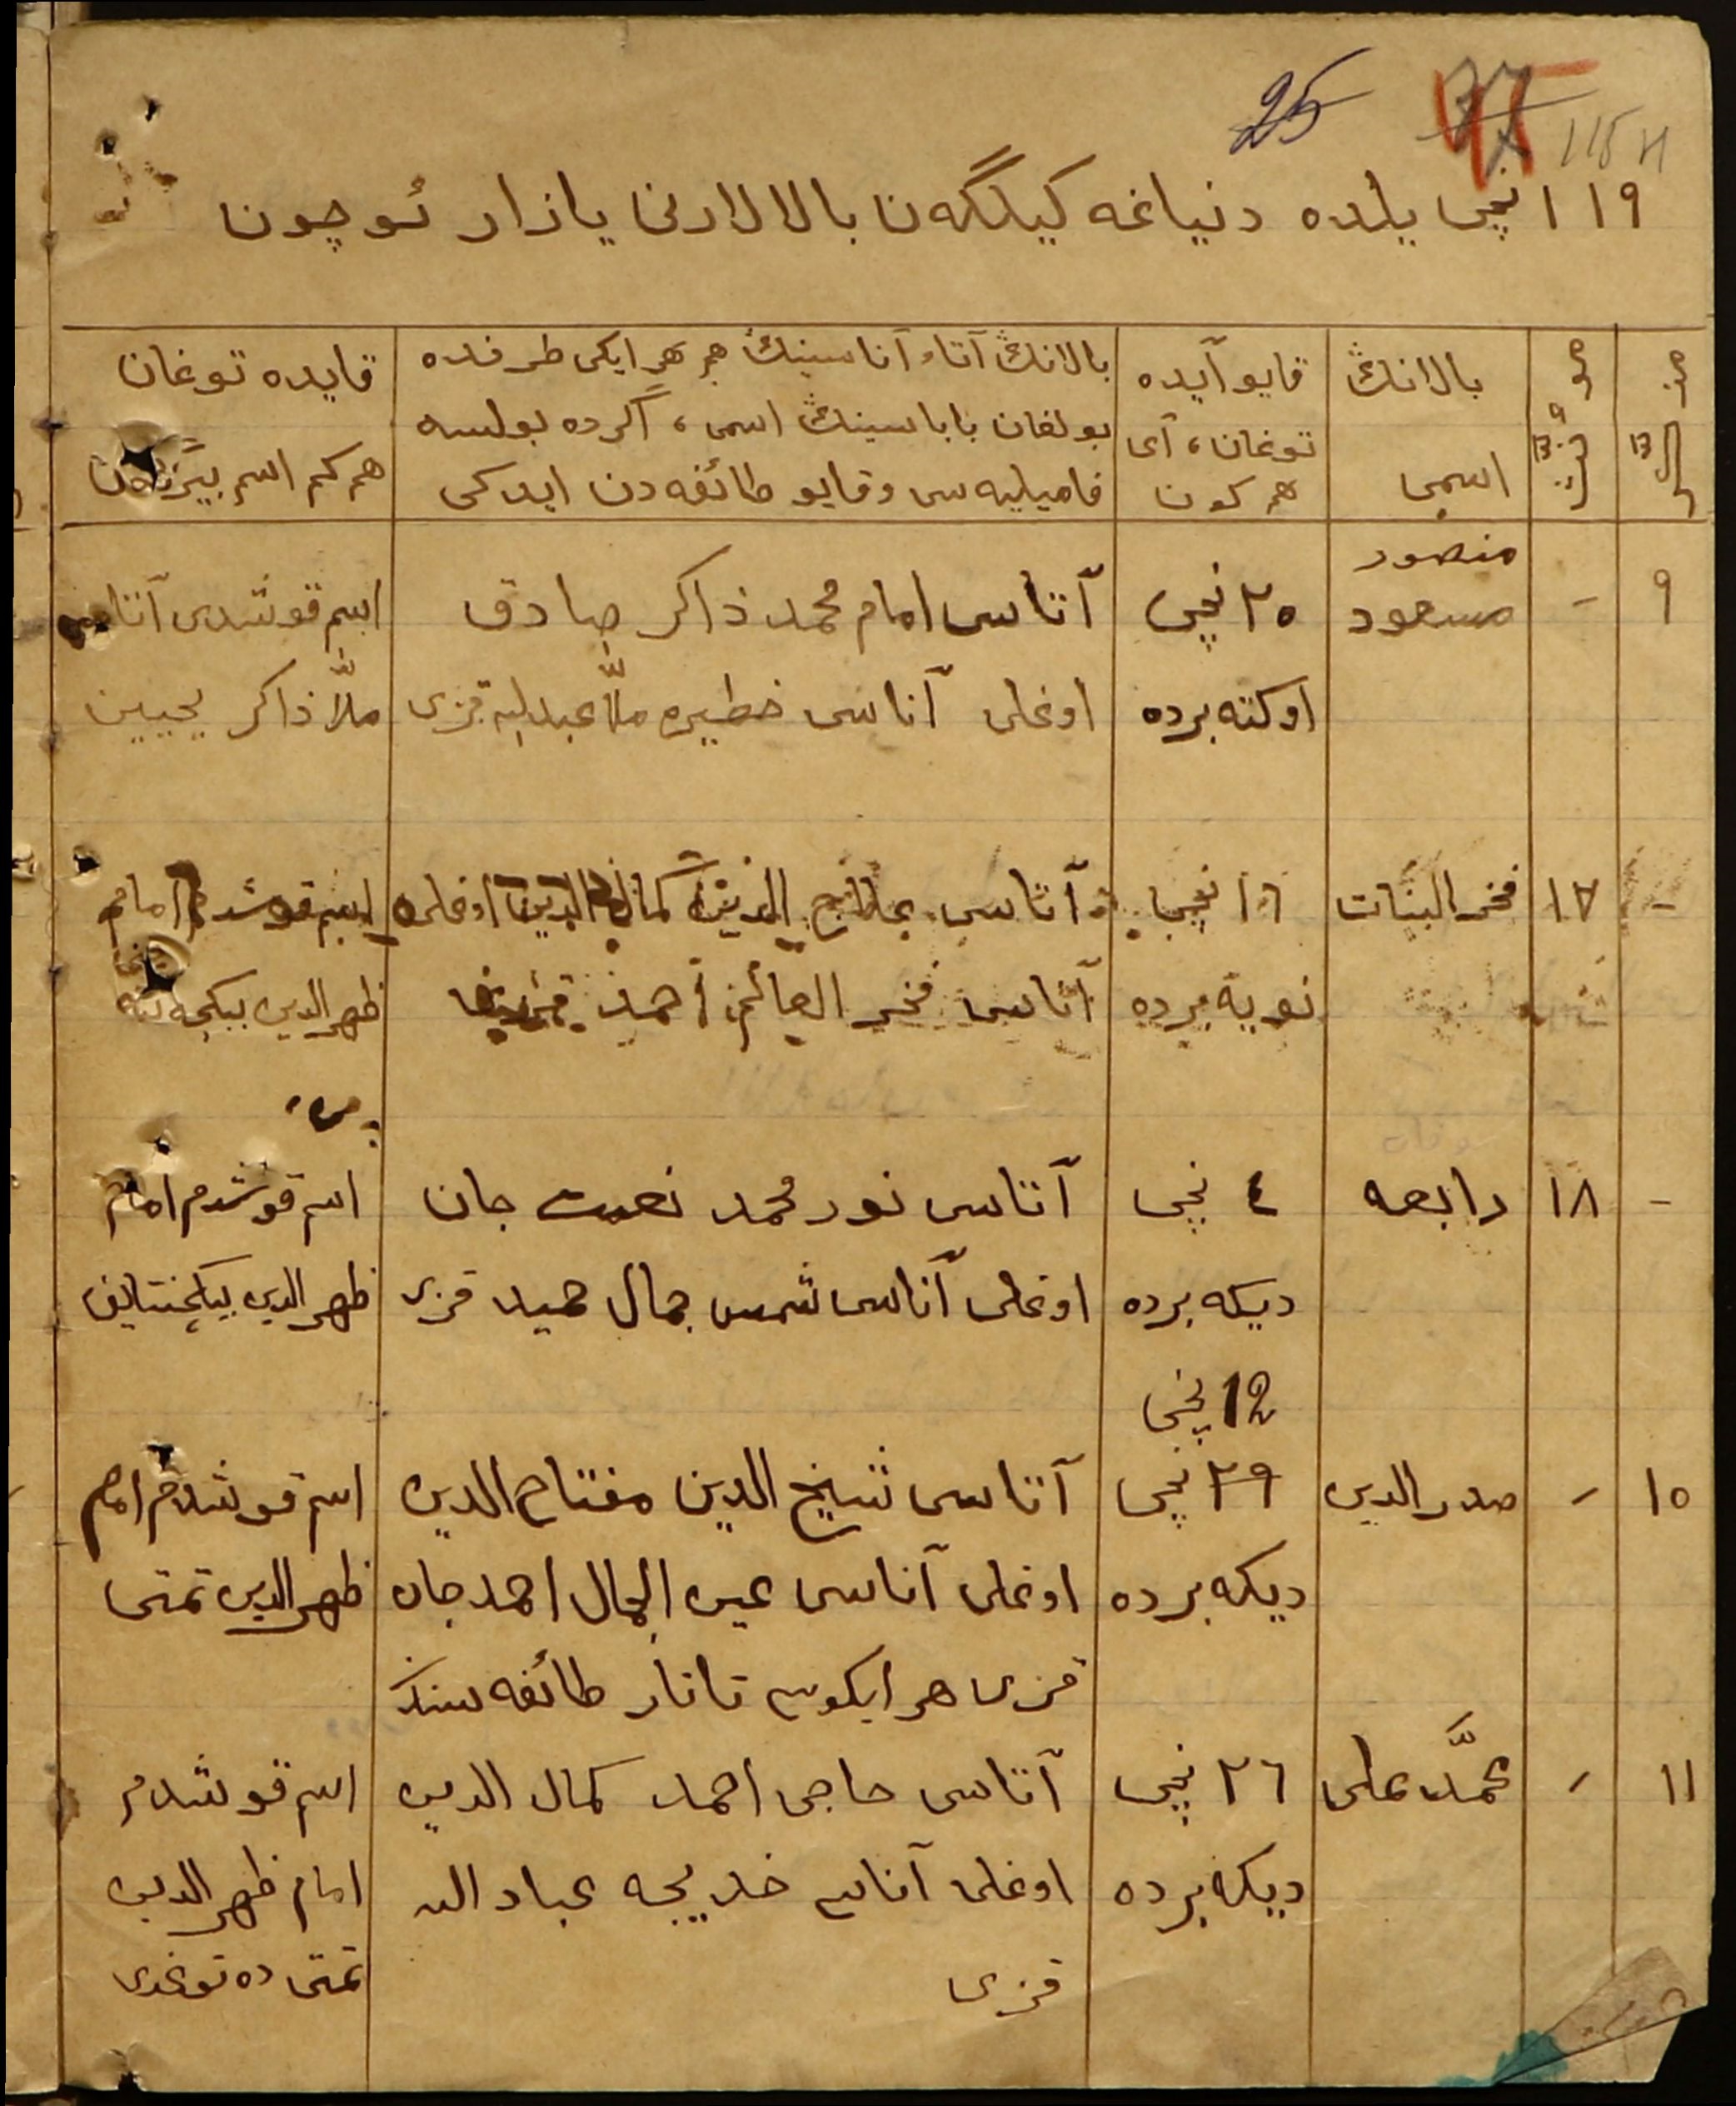 25
115 н
١٩١١ نچی یلده دنیاغه کیلگه‌ن بالالارنی یازار ئوچون
مذکر
مؤنّث
بالانڭ
اسمی
قایو آیده
توغان، آی
هم کون
بالانڭ آتا، آناسینڭ هم هر ایکی طرفده
بولغان باباسینڭ اسمی، اگرده بولسه
فامیلیه سی وقایو طائفه دن ایدکی
قایده توغان
هم کم اسم بیرگه‌ن
٩
-
منصور
مسعود
٢٥ نچی
اوکته برده
آتاسی امام محمد ذاکر صادق
اوغلی آناسی خطیره ملّا عبدالله قزی
اسم قوشدی آتاسی
ملّا ذاکر یحیین
-
١٧
فخر البنات
١٦ نچی
نویه برده
آتاسی الدین کمال الدین اوغلی
آناسی فخر العالم احمد
اسم قوشدم امام
ظهر الدین
-
١٨
رابعه
٤ نچی
دیکه برده
آتاسی نور محمد نعمت جان
اوغلی آناسی شمس جمال حمید قزی
اسم قوشدم امام
ظهر الدین
١٥
-
صدر الدین
12 نچی
٢٩ نچی
دیکه برده
آتاسی شیخ الدین مفتاح الدین
اوغلی آناسی عین الجمال احمد جان
قزی هر ایکوسی تاتار طائفه سندن
اسم قوشدم امام
ظهر الدین تمتی
١١
-
محمّد علی
٢٦ نچی
دیکه برده
آتاسی حاجی احمد کمال الدین
اوغلی آناسی خدیجه عباد الله
قزی
اسم قوشدم
امام ظهر الدین
تمتی ده توغدی